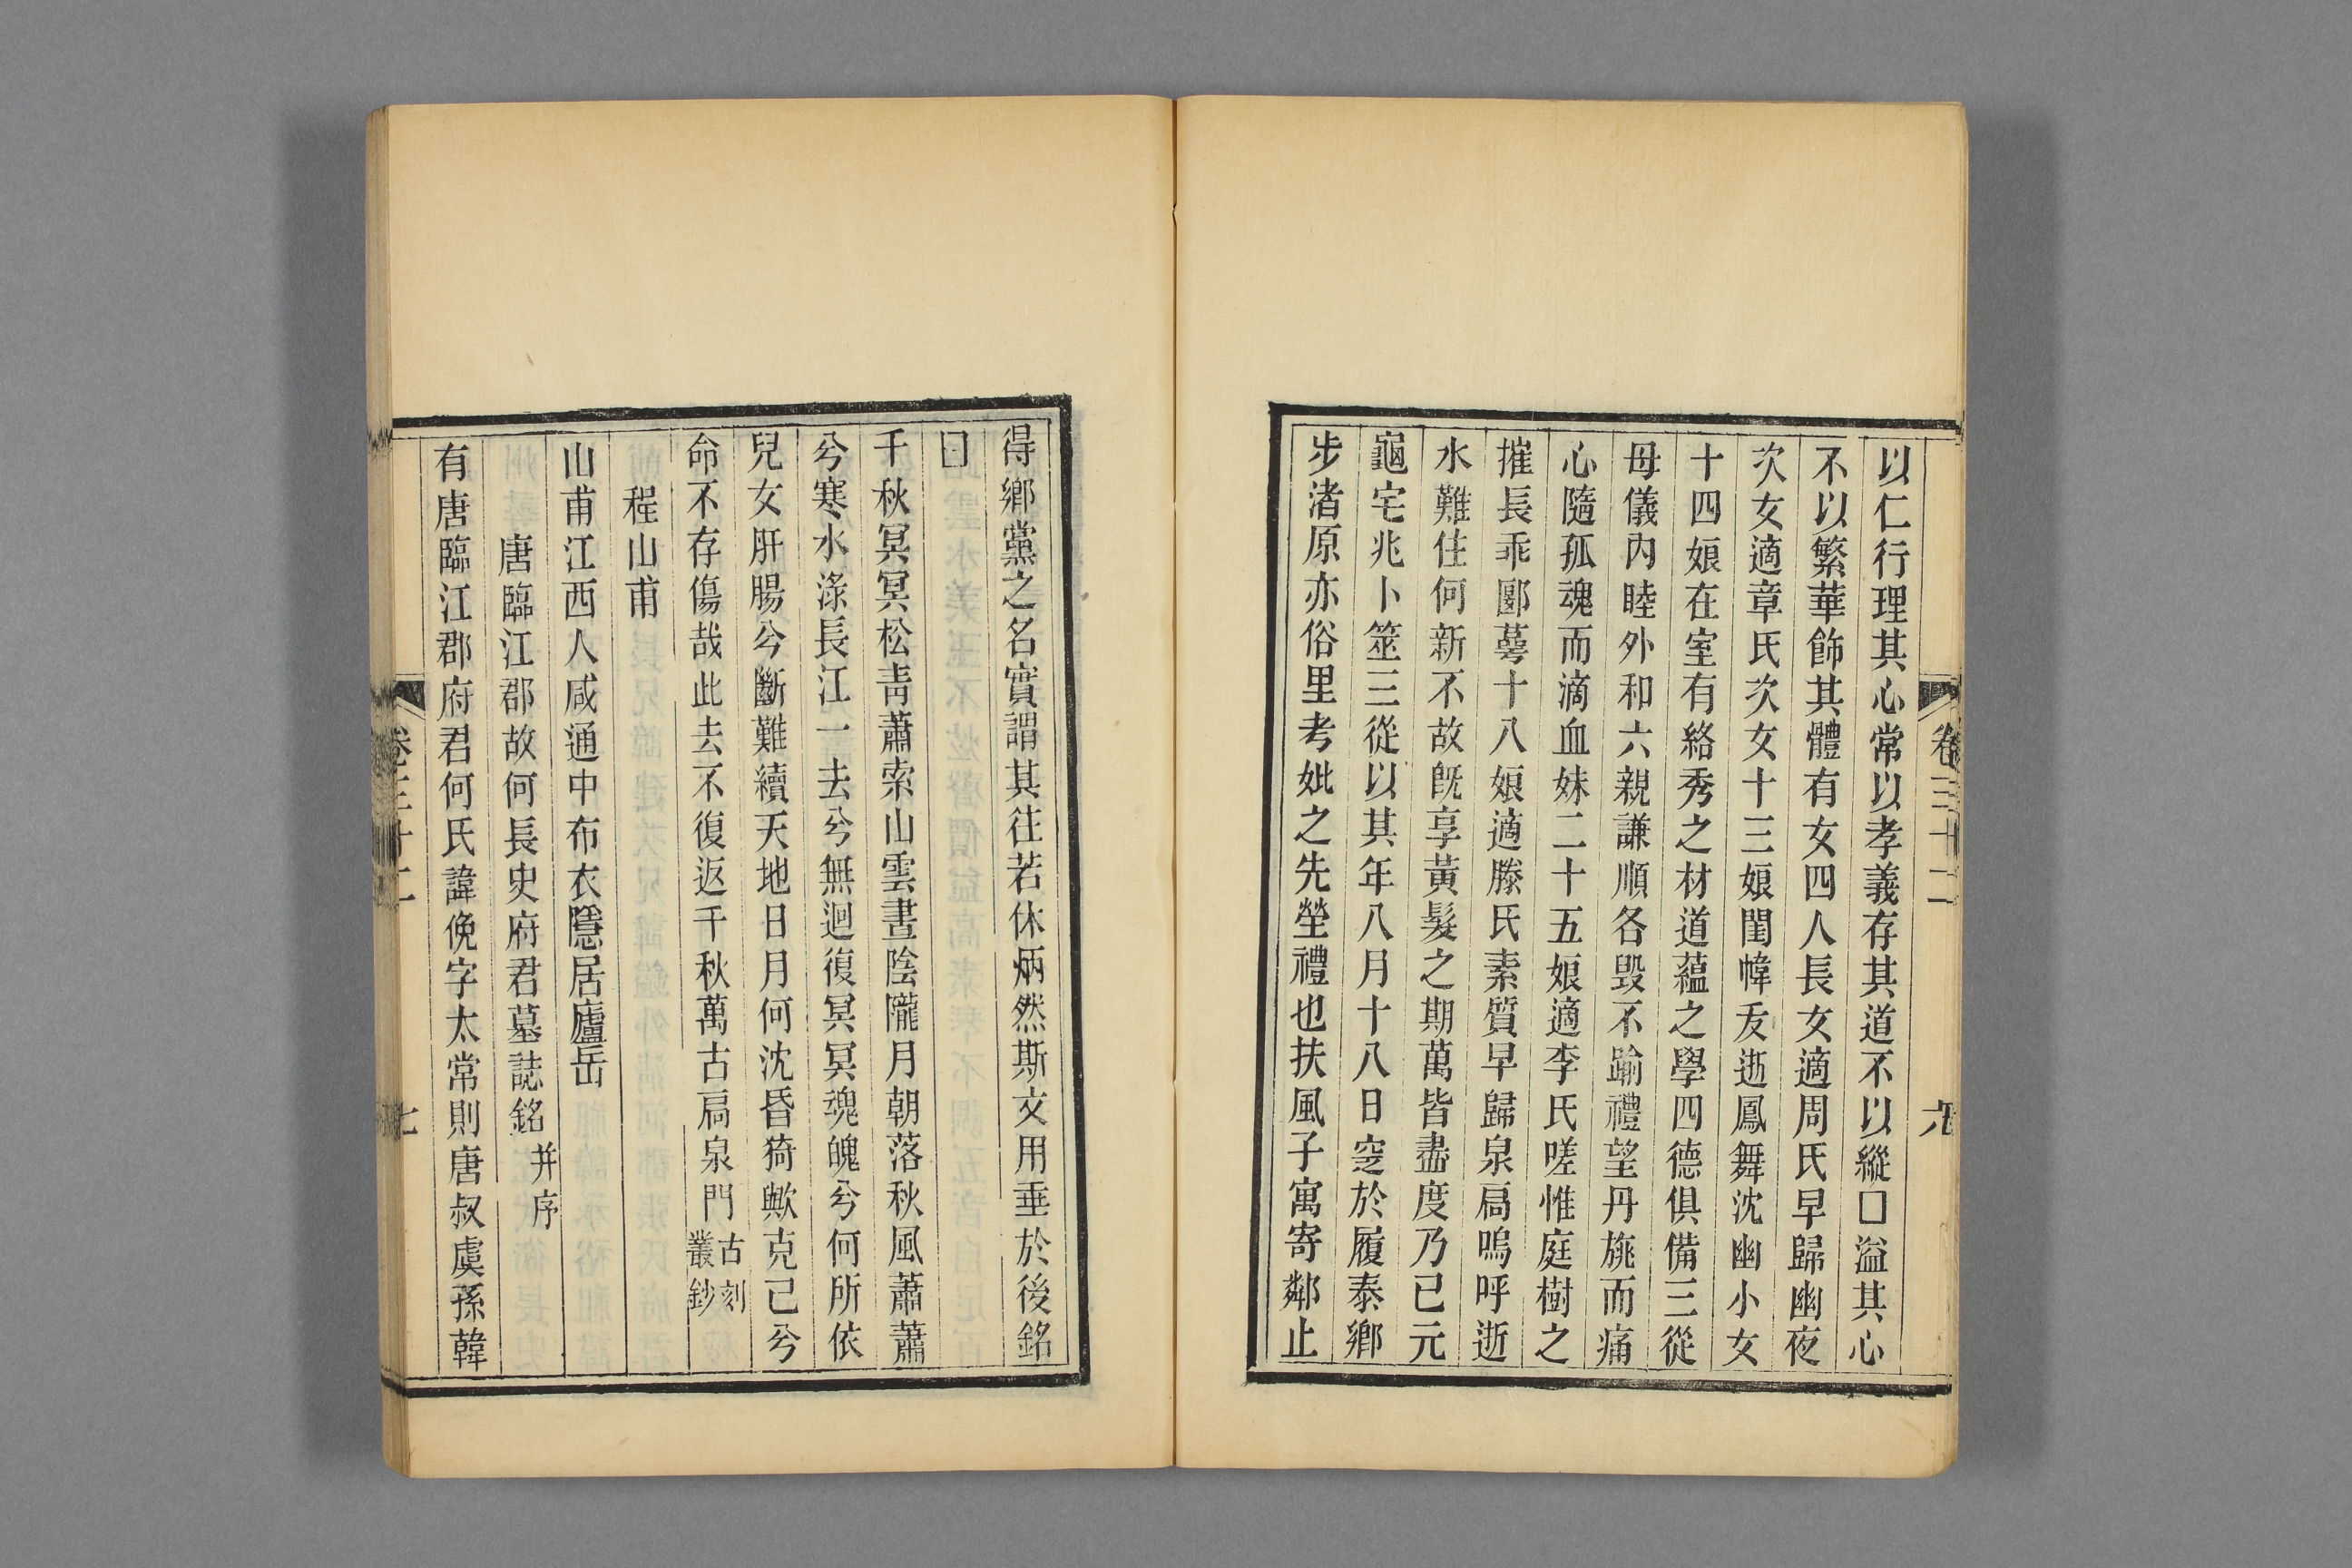 以仁行理其心常以孝義存其道不以縱□溢其心
不以繁華飾其體有女四人長女適周氏早歸幽夜
次女適章氏次女十三娘閨幃叐逝鳳舞沈幽小女
十四娘在室有絡秀之材道蘊之學四德俱備三從
母儀內睦外和六親謙順各毀不踰禮望丹旐而痛
心隨孤魂而滴血妹二十五娘適李氏嗟惟庭樹之
摧長乖郾蕚十八娘適滕氏素質早歸泉扃嗚呼逝
水難住何新不故旣享黃髮之期萬皆盡度乃已元
龜宅兆卜筮三從以其年八月十八日窆於履泰鄉
步渚原亦俗里考妣之先塋禮也扶風子寓寄鄰止
卷三十二
得鄉黨之名實謂其往若休炳然斯文用垂於後銘
曰
千秋冥冥松靑蕭索山雲晝陰隴月朝落秋風蕭蕭
兮寒水淥長江一去兮無迴復冥冥魂魄兮何所依
兒女肝腸兮斷難續天地日月何沈昏猗歟克己兮
命不存傷哉此去不復返千秋萬古扃泉門古刻叢鈔
程山甫
山甫江西人咸通中布衣隱居廬岳
唐臨江郡故何長史府君墓誌銘并序
有唐臨江郡府君何氏諱俛字太常則唐叔虞孫韓
卷三十二
七